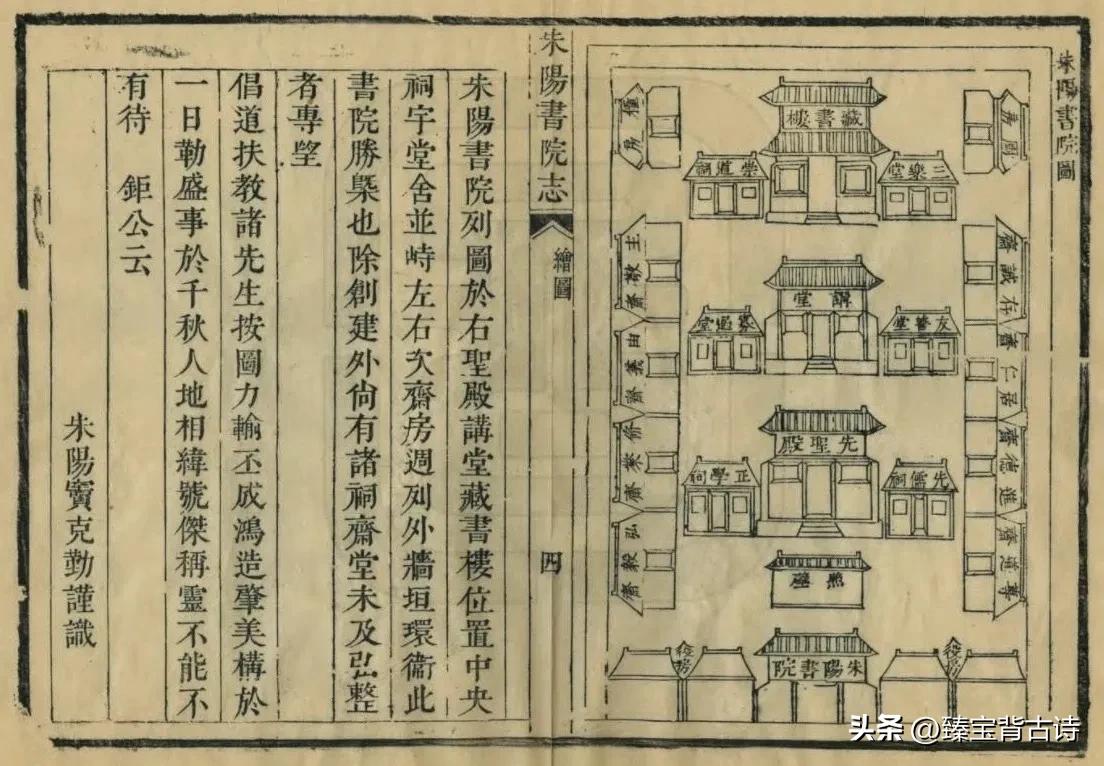 朱陽書院圖
藏書樓
三樂堂
崇道祠
存誠齋
居仁齋
進德齋
尊道齋
主敬齋
由義齋
修業齋
弘毅齋
講堂
友善堂
寡過堂
先聖殿
先儒祠
正學祠
照壁
役房
朱陽書院
役房
朱陽書院志
繪圖
四
朱陽書院列圖於右聖殿講堂藏書樓位置中央
祠宇堂舍並峙左右次齋房週列外牆垣環衞此
書院勝槩也除創建外尙有諸祠齋堂未及弘整
者專望
倡道扶教諸先生按圖力輸丕成鴻造肇美構於
一日勒盛事於千秋人地相緯號傑稱靈不能不
有待 鉅公云
朱陽竇克勤謹識
头条 @臻宝背古诗